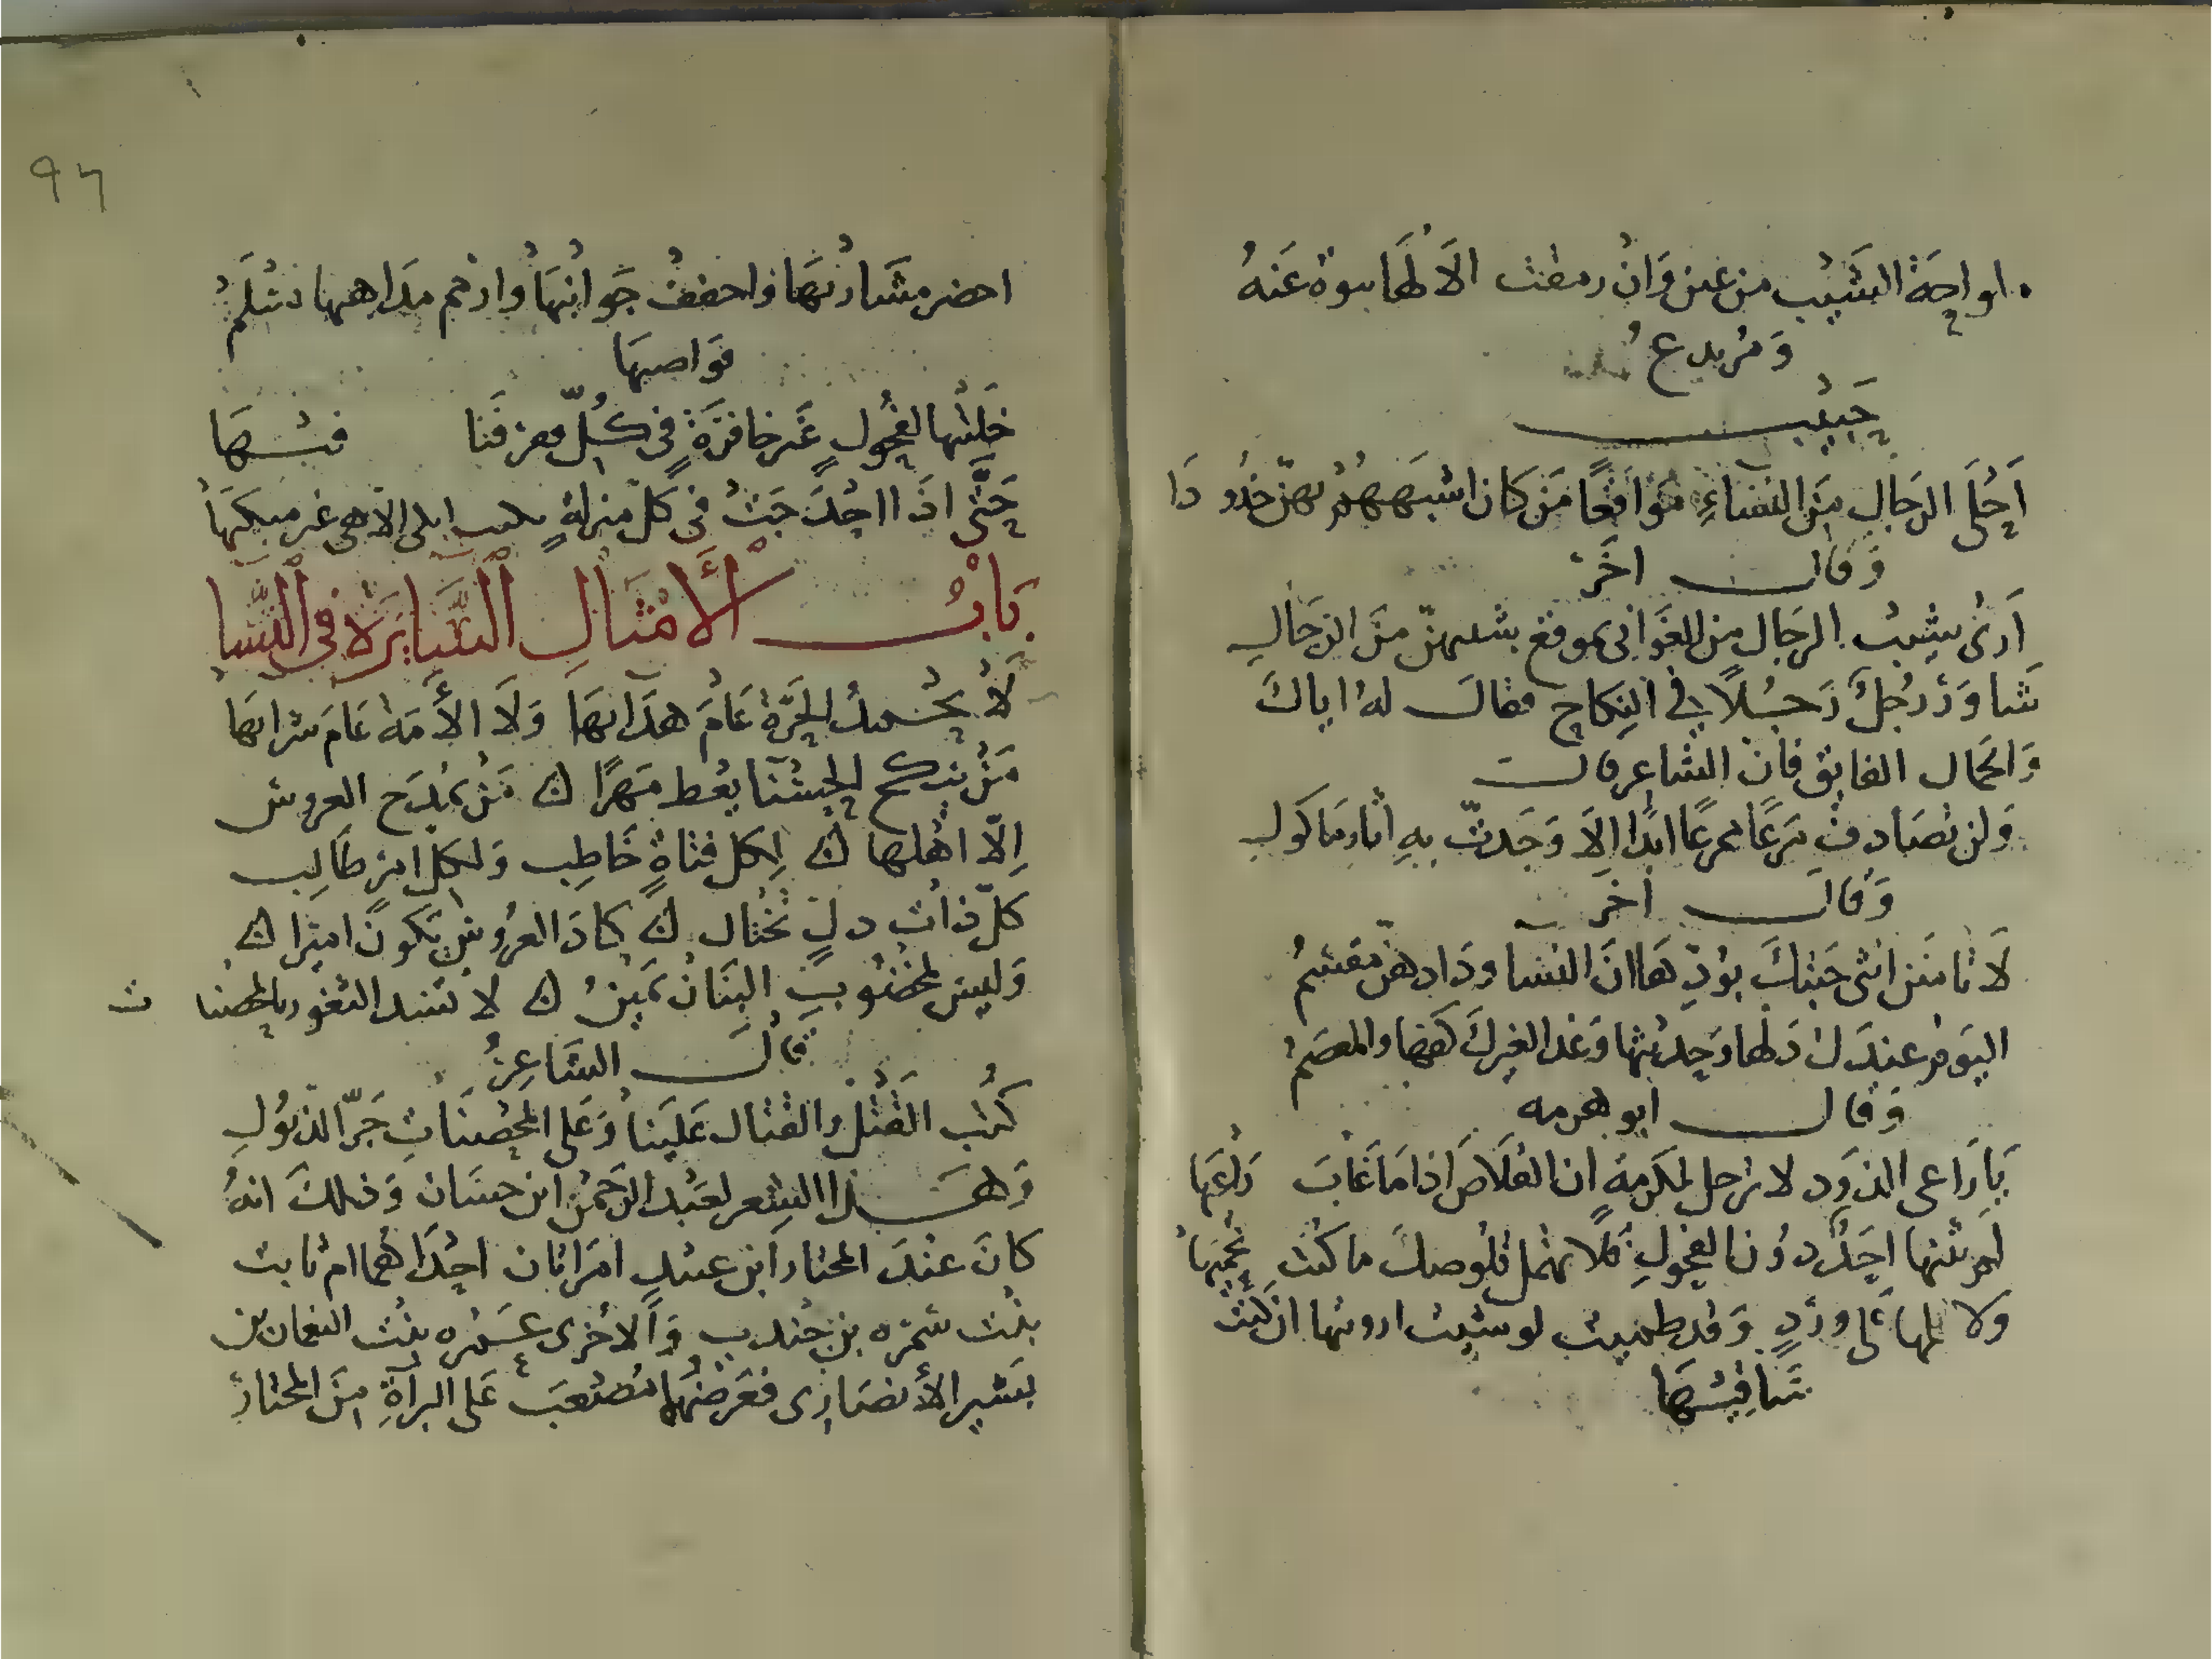 لواحة الشيب من عين وان رمقت الا لها نبوة عنه
ومرتدع
حبيب
أحلى الرجال من النساء مواقعا من كان اشبههم بهن خدودا
وقال اخر
أرى شيب الرجال من الغواني بموقع شيبهن من الرجال
شاور رجل رجلا في النكاح فقال له اياك
والجمال الفايق فان الشاعر قال
ولن تصادف مرعا ممرعا ابدا الا وجدت به اثار ماكول
وقال اخر
لا تامنن انثى حبتك بودها ان النسا ودادهن مقسم
اليوم عندك دلها وحديثها وغدا لغيرك كفها والمعصم
وقال ابو هرمه
يا راعي الذود لا ترحل لمكرمة ان القلاص اذا ما غاب راعيها
لم يثنها احد دون الفحول فلا تهمل قلوصك ما كنت تحميها
ولا على ورد وقد ظميت لو شيت ارويتها ان كنت
ساقيها
٩٦
احضر مشاربها واحفف جوانبها وارحم مداهنها تسلم
قواصيها
خليتها لفحول غير خافرة في كل فيها
حتى اذا احدجت في كل منزلة الا هي غير مبكيها
باب الأمثال السايرة في النسا
لا تحمد الحرة عام هدائها ولا الأمة عام شرائها
من ينكح الحسنا يعط مهرا من يمدح العروس
إلا اهلها لكل فتاة خاطب ولكل امر طالب
كل ذات دل تختال كاد العروس يكون اميرا
وليس لمخضوب البنان يمين لا تسد الثغور بالمحصنا ت
قال الشاعر
كتب القتل والقتال علينا وعلى المحصنات جر الذيول
وهذا الشعر لعبد الرحمن ابن حسان وذلك انه
كان عند المختار ابن عبيد امراتان احداهما ام ثابت
بنت سمره بن جندب والأخرى عمره بنت النعمان بن
بشير الأنصاري فعرضهما مصعب على البرآة من المختار